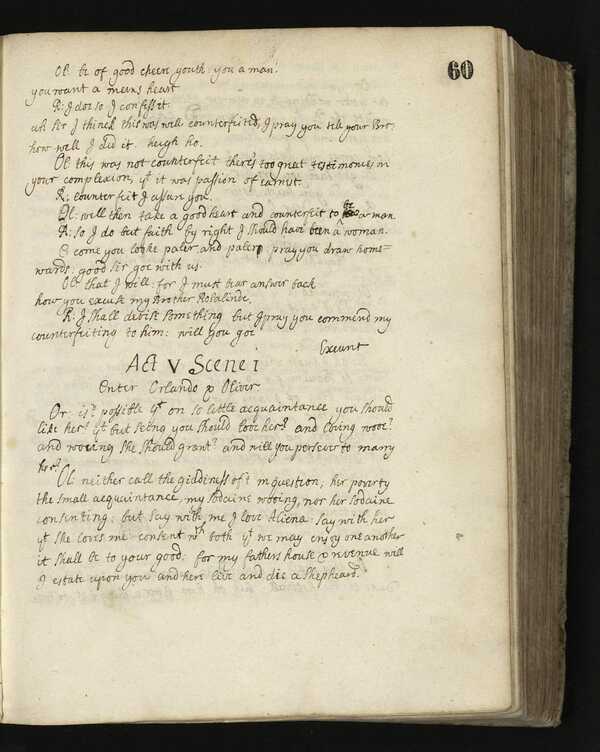 60
Ol: be of good cheere youth: you a man?
you want a mens heart
R: I doe so I confess it.
ah sir I thinck this was well counterfeited, I pray you tell your Bro:
how well I did it. heigh ho.
Ol: this was not counterfeit there's too great testimonies in
your complexion, yt it was passion of earnist.
R: counterfeit I assure you.
Ol: well then take a good heart and counterfeit to be a man.
R: so I do but faith by right I should have been a woman.
C come you looke paler and paler, pray you draw home=
wards: good sir goe with us.
Ol: that I will: for I must bear answer back
how you excuse my Brother Rosalinde.
R: I shall devise something but I pray you commend my
counterfeiting to him: will you goe
Exeunt
Act V Scene i
Enter Orlando & Oliver
Or: is't possible yt on so little acquaintance you should
like her? yt but seeing you should love her? and loving wooe?
and wooing she should grant? and will you persever to marry
her?
Ol: neither call the giddiness of't in question; her poverty
the small acquaintance, my sodaine wooing, nor her sodaine
consenting: but say with me I love Aliena: say with her
yt she loves me: consent wth both yt we may enjoy one another
it shall be to your good: for my fathers house & revenue will
I estate upon you and here live and die a Shepheard.